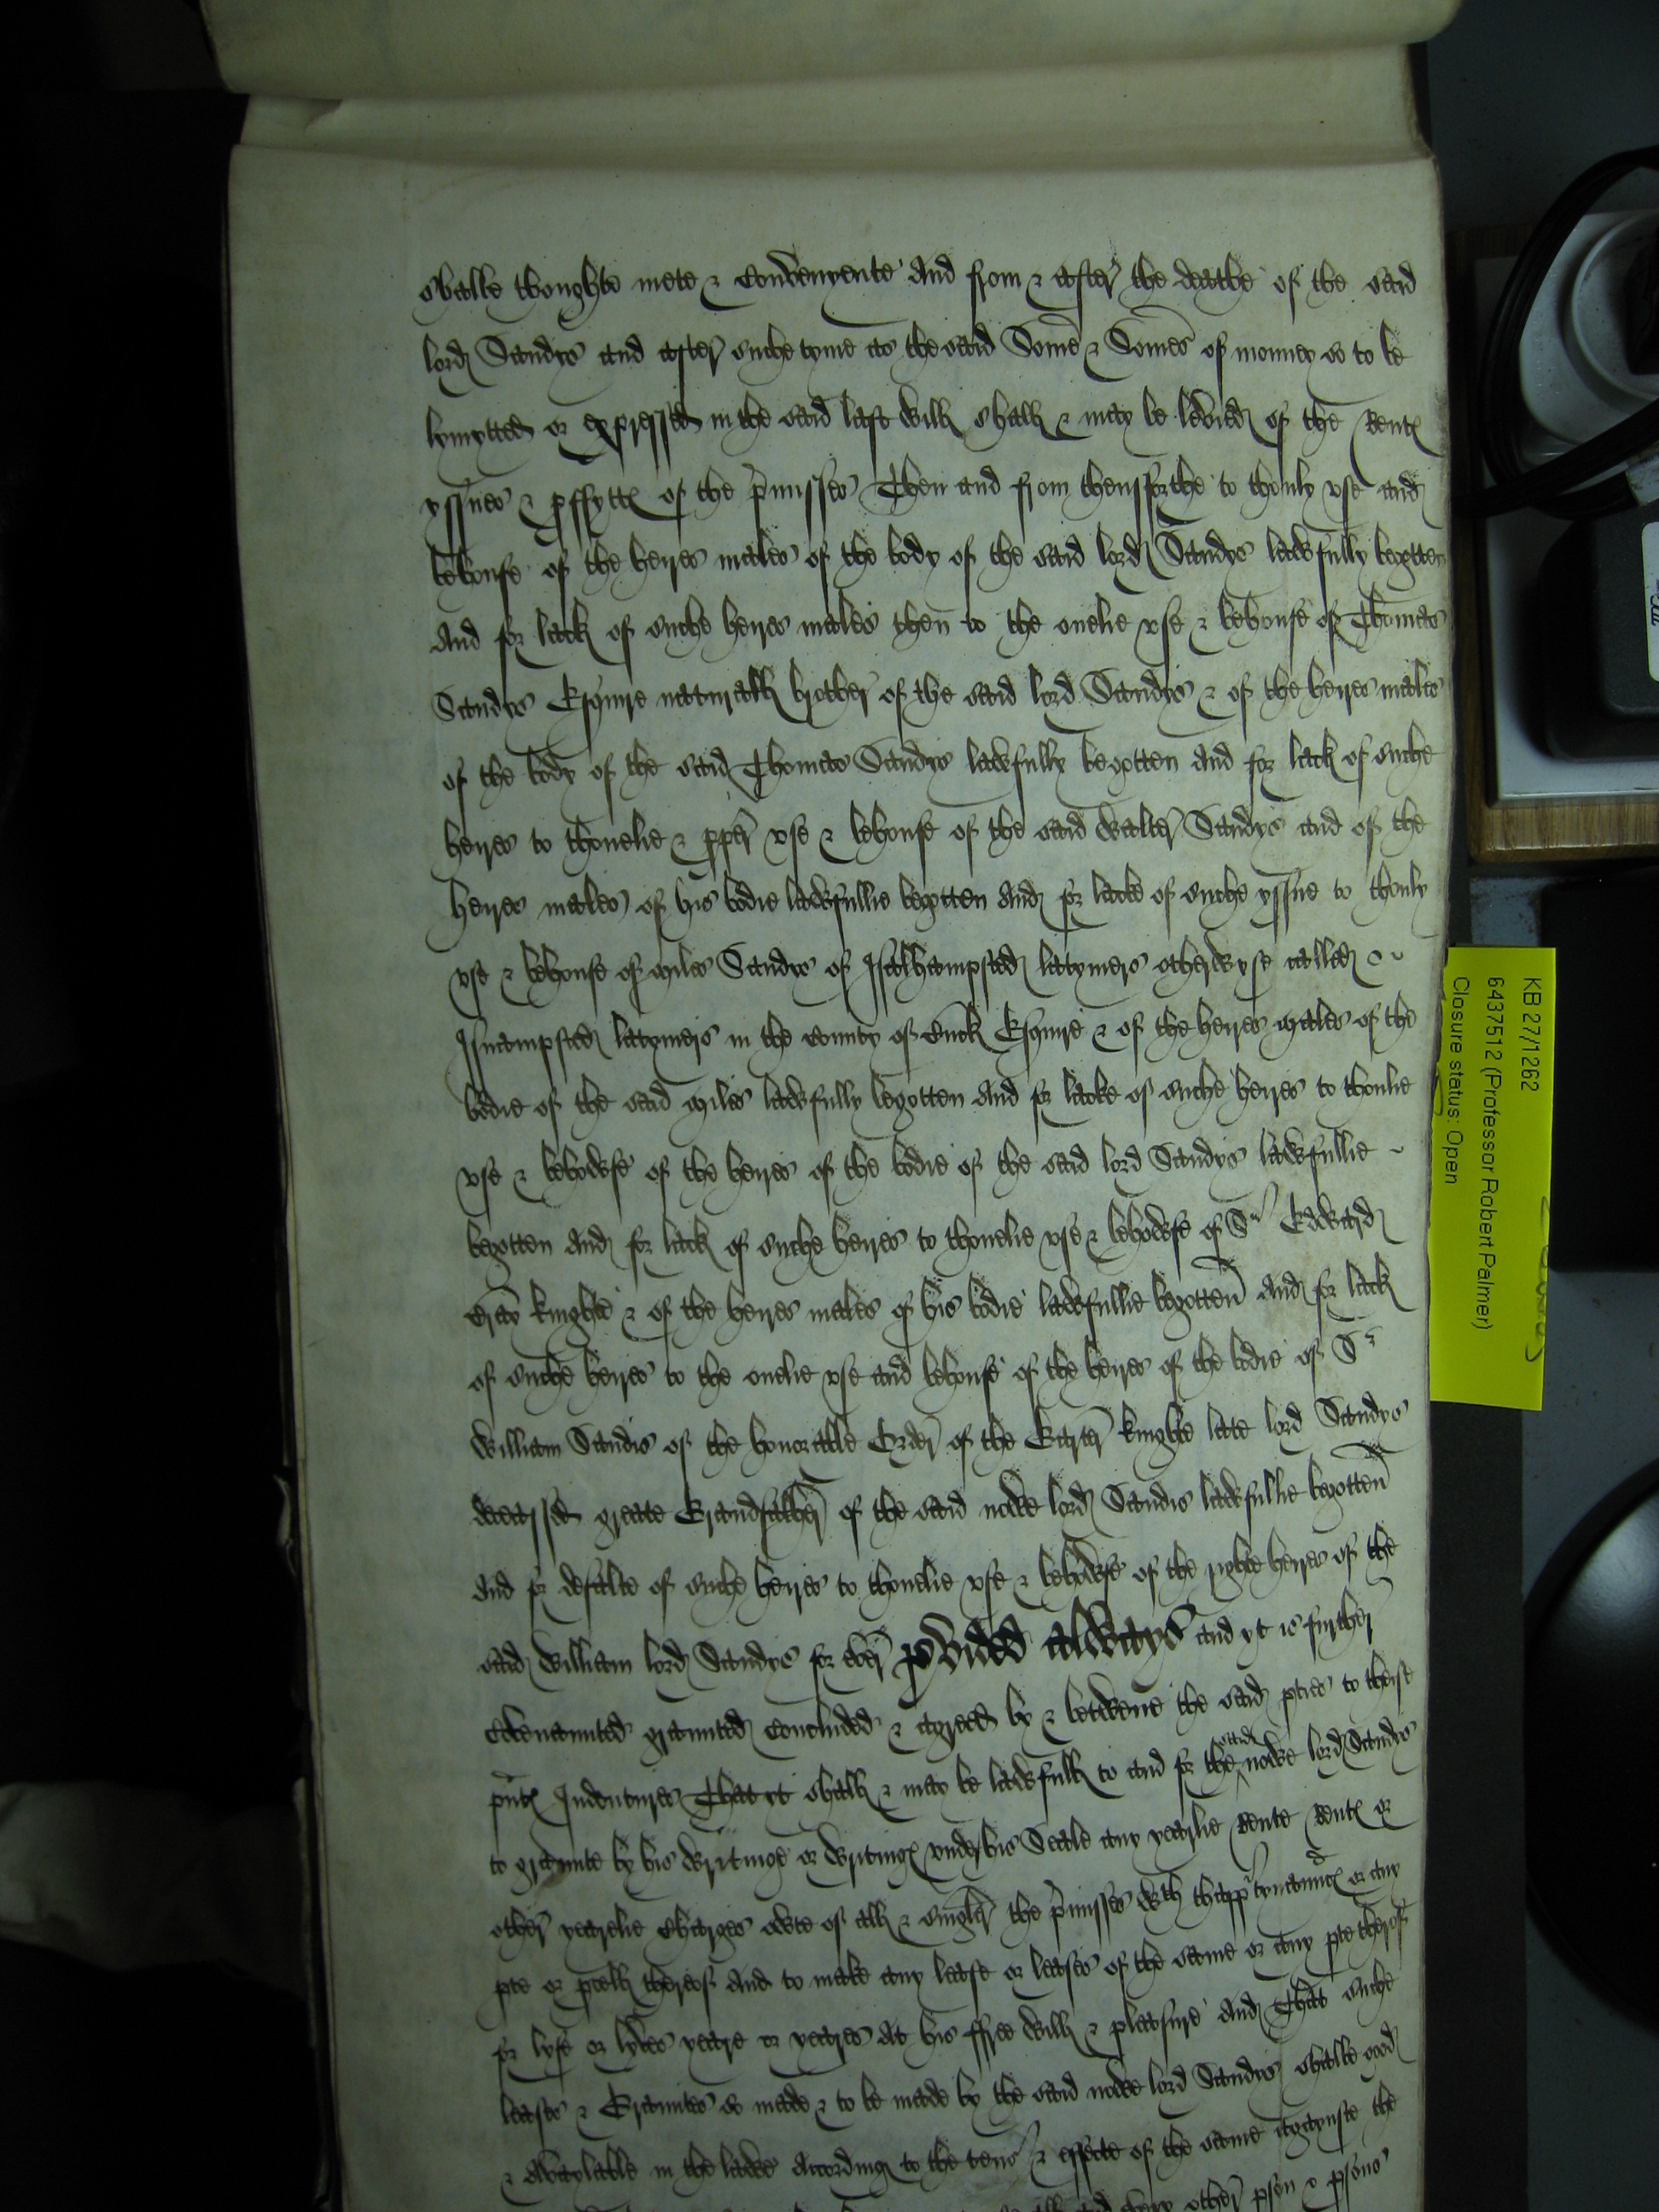 shalle thoughte mete & Convenyente And from & after the deathe of the said
lord Sandys and after suche tyme as the said Some & Somes of money so to be
lymytted or expressed in the said last will shall & may be levied of the Rent
yssues & pffytt of the pmisses Then and from thensforthe to thonly vse and
behoufe of the heyres males of the body of the said lord Sandys lawfully begotten
And for lack of suche heyres males then to the onelie vse & behoufe of Thomas
Sandys Esquire naturall brother of the said lord Sandys & of the heyres males
of the body of the said Thomas Sandys lawfully begotten And for lack of suche
heyres to thonelie & pper vse & behoufe of the said Walter Sandys and of the
heyres males of his bodie lawfullie begotten And for lacke of suche yssue to thonly
vse & behoufe of Myles Sandys of Iselhampsted latymers otherwyse called
Isnampsted latymers in the County of Buck Esquire & of the heyres Males of the
bodie of the said Miles lawfully begotten And for lacke of suche heyres to thonlie
vse & behowfe of the heyres of the bodie of the said lord Sandys lawfullie
begotten And for lack of suche heyres to thonelie vse & behowfe of Sr Edward
Bray knighte & of the heyres males of his bodie lawfullie begotten And for lack
of suche heyres to the onelie vse and behoufe of the heyres of the bodie of Sr
William Sandis of the honorable Order of the Garter knighte late lord Sandys
deceassed greate Grandfather of the said nowe lord Sandis lawfullie begotten
And for defalte of suche heyres to thonelie vse & behowfe of the righte heyres of the
said William lord Sandys for ever pvided alwayes and yt is further
Covenaunted graunted Concluded & agreed by & betwene the said pties to theise
pnt Indentures That yt shall & may be lawfull to and for the said nowe lord Sandys
to graunte by his writinge or writing vnder his Seale any yearlie Rente Rent or
other yearelie Charges owte of all & singler the pmisses wth thapptynaunc or any
pte or pcell thereof And to make any lease or leases of the same or any pte therof
for lyfe or lyves yeare or yeares At his ffree will & pleasure And That suche
leases & Grauntes so made & to be made by the said nowe lord Sandys shalbe good
& avaylable in the lawe According to the teno & effecte of the same agaynste the
other pson & psons